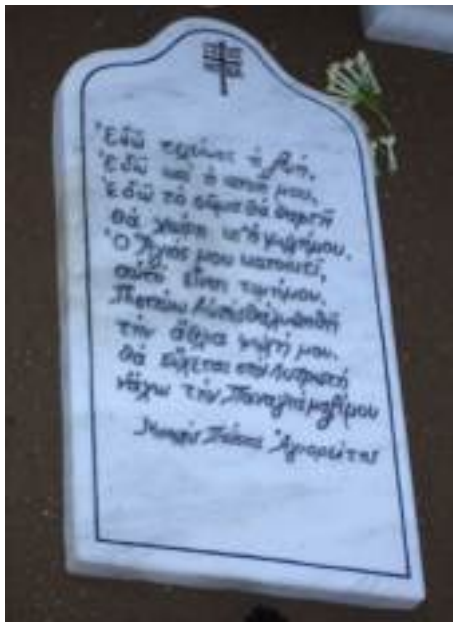 Ἐδῶ τελείωσε ἡ ζωή,
ἐδῶ καί ἡ πνοή μου,
ἐδῶ τό σῶμα θά θαφτῆ
θά χαίρη κι' ἡ ψυχή μου.
Ὁ Ἅγιός μου κατοικεῖ,
αὐτό εἶναι τιμή μου.
Πιστεύω θά λυπηθῆ
τήν ἄθλια ψυχή μου.
θά εὔχεται στόν Λυτρωτή
νἄχω τήν Παναγιά μαζί μου
Μοναχός Παΐσιος Ἁγιορείτης